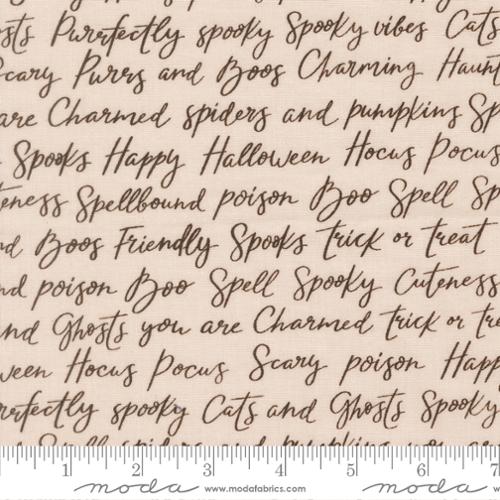 Purrfectly spooky Spooky vibes Cats
Scary Purrs and Boos Charming Haunt
are Charmed spiders and pumpkins Sp
Spooks Happy Halloween Hocus Pocus
teness Spellbound poison Boo Spell Sp
nd Boos Friendly Spooks trick or treat
nd poison Boo Spell Spooky Cuteness
and Ghosts you are Charmed trick or tre
ween Hocus Pocus Scary poison Happ
rrfectly spooky Cats and Ghosts Spooky
1 2 3 4 5 6 7
moda www.modafabrics.com moda www.modafabrics.com moda